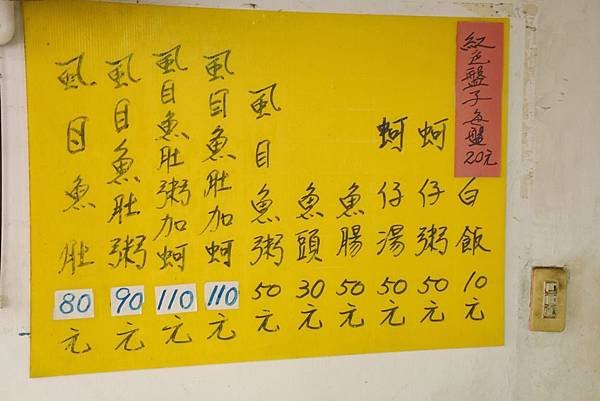 紅色盤子每盤20元
白飯10元
蚵仔粥50元
蚵仔湯50元
魚腸50元
魚頭30元
虱目魚粥50元
虱目魚肚加蚵110元
虱目魚肚粥加蚵110元
虱目魚肚粥90元
虱目魚肚80元